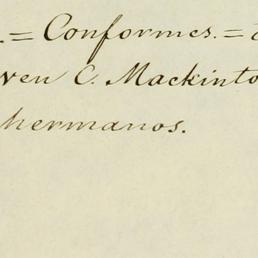 . = Conformes. =
ven C. Mackinto
hermanos.